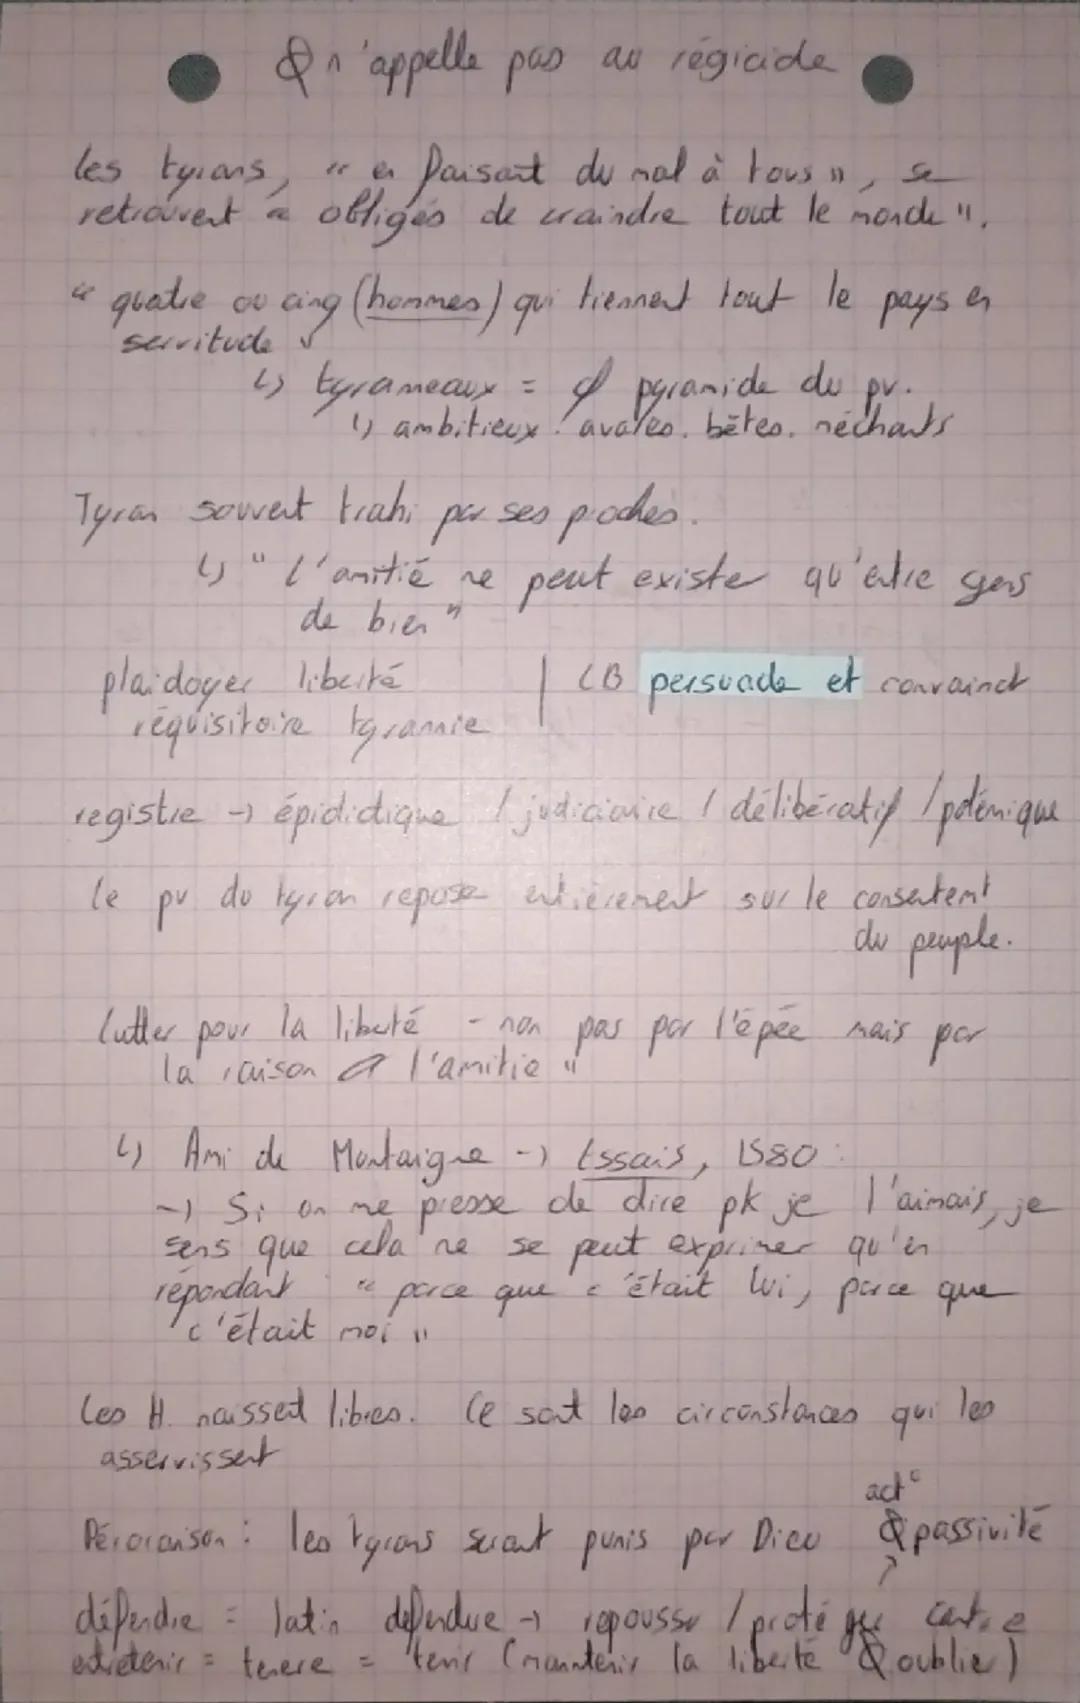 & n'appelle pas au régicide
les tyrans, " en faisant du mal à tous ", se
retrouvent " obligés de craindre tout le monde ".
" quatre ou cinq (hommes) qui tiennent tout le pays en
servitude
↳ tyranneaux = pyramide du pv.
↳ ambitieux. avares. bêtes. méchants
Tyran souvent trahi par ses proches.
↳ " L'amitié ne peut exister qu'entre gens
de bien "
plaidoyer liberté | LB persuade et convainct
réquisitoire tyrannie
registre → épididique / judiciaire / délibératif / polémique
le pv du tyran repose entièrement sur le consentemt
du peuple.
lutter pour la liberté - non pas par l'épée mais par
la raison l'amitie "
↳ Ami de Montaigne → Essais, 1580 :
→ Si on me presse de dire pk je l'aimais, je
sens que cela ne se peut exprimer qu'en
répondant " parce que c'était lui, parce que
c'était moi "
Les H. naissent libres. Ce sont les circonstances qui les
asservissent
act°
Péroraison : les tyrans seront punis par Dieu passivité
défendre = latin defendere → repousser / protéger contre
entretenir = tenere = tenir (maintenir la liberté oublier)